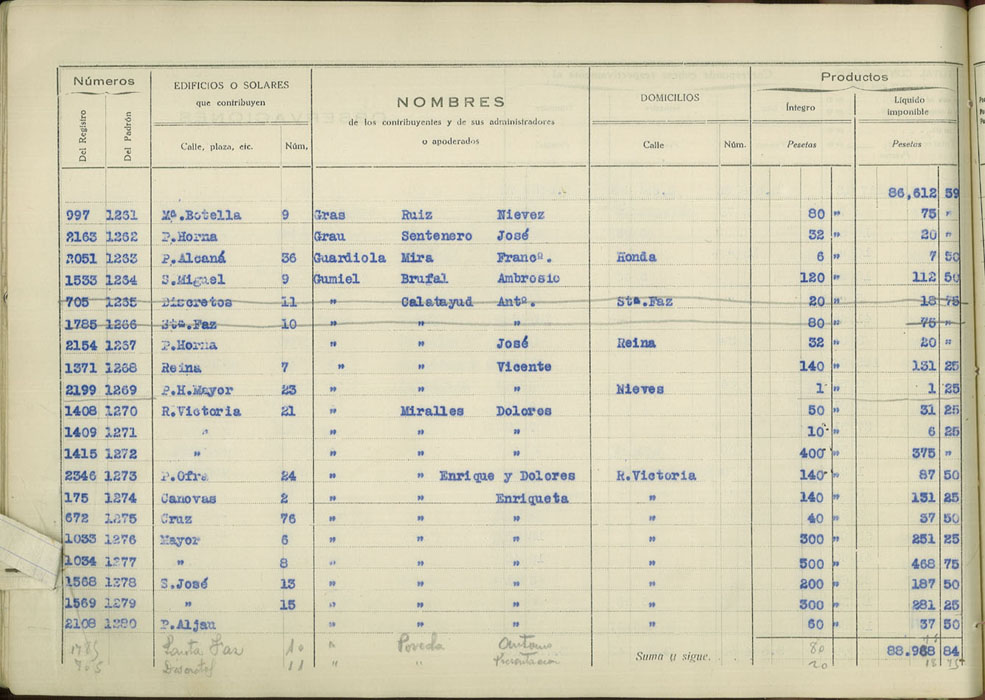 Números EDIFICIOS O SOLARES NOMBRES DOMICILIOS Productos
que contribuyen de los contribuyentes y de sus administradores Íntegro Líquido imponible
Del Registro Del Padrón Calle, plaza, etc. Núm. o apoderados Calle Núm. Pesetas Pesetas
86,612 59
997 1261 Mª.Botella 9 Gras Ruiz Nievez 80 " 75 "
2163 1262 P.Horna Grau Sentenero José 32 " 20 "
2051 1263 P.Alcaná 36 Guardiola Mira Francº. Honda 6 " 7 50
1533 1264 S.Miguel 9 Gumiel Brufal Ambrosio 120 " 112 50
705 1265 Discretos 11 " Calatayud Antº. Stª.Faz 20 " 18 75
1785 1266 Stª.Faz 10 " " " 80 " 75 "
2154 1267 P.Horna " " José Reina 32 " 20 "
1371 1268 Reina 7 " " Vicente 140 " 131 25
2199 1269 P.H.Mayor 23 " " " Nieves 1 " 1 25
1408 1270 R.Victoria 21 " Miralles Dolores 50 " 31 25
1409 1271 " " " " 10 " 6 25
1415 1272 " " " " 400 " 375 "
2346 1273 P.Ofra 24 " " Enrique y Dolores R.Victoria 140 " 87 50
175 1274 Canovas 2 " " Enriqueta " 140 " 131 25
672 1275 Cruz 76 " " " " 40 " 37 50
1033 1276 Mayor 6 " " " " 300 " 251 25
1034 1277 " 8 " " " " 500 " 468 75
1568 1278 S.José 13 " " " " 200 " 187 50
1569 1279 " 15 " " " " 300 " 281 25
2108 1280 P.Aljau " " " " 60 " 37 50
1785 Santa Faz 10 " Poveda Antonio 80 75
Suma y sigue. 88.968 84
705 Discretos 11 " " Presentación 20 18 75